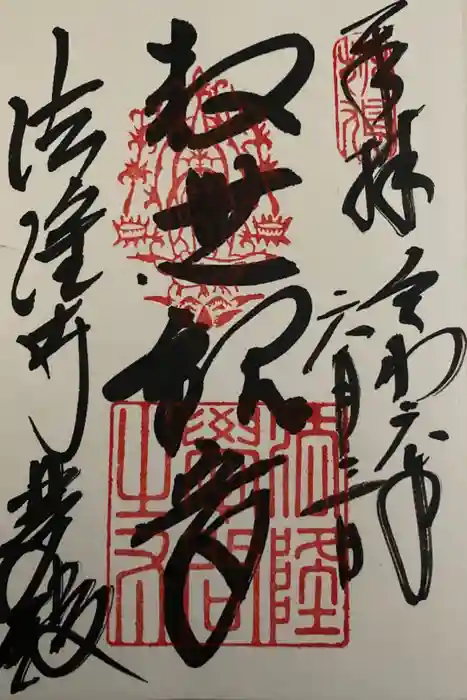 奉拝
令和六年
六月三日
救世観音
法隆寺 夢殿
法隆
學問
之印